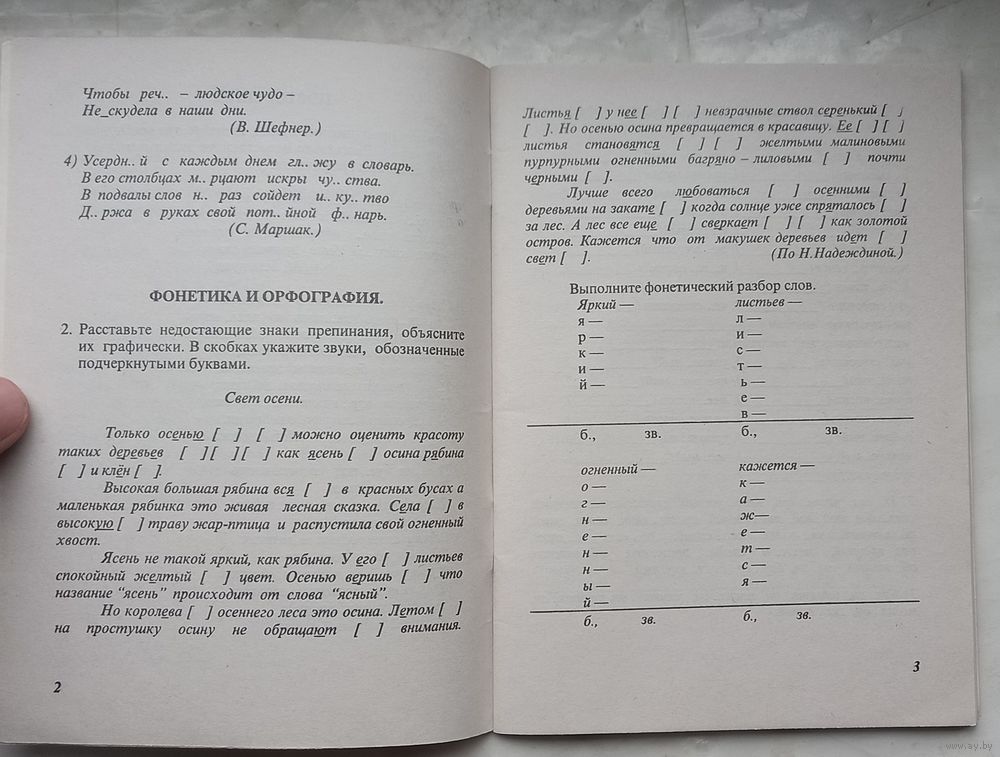 Чтобы реч.. – людское чудо –
Не_скудела в наши дни.
(В. Шефнер.)
4) Усердн.. й с каждым днем гл.. жу в словарь.
В его столбцах м.. рцают искры чу.. ства.
В подвалы слов н.. раз сойдет и.. ку.. тво
Д.. ржа в руках свой пот.. йной ф.. нарь.
(С. Маршак.)
ФОНЕТИКА И ОРФОГРАФИЯ.
2. Расставьте недостающие знаки препинания, объясните
их графически. В скобках укажите звуки, обозначенные
подчеркнутыми буквами.
Свет осени.
Только осенью [ ] [ ] можно оценить красоту
таких деревьев [ ] [ ] [ ] как ясень [ ] осина рябина
[ ] и клён [ ].
Высокая большая рябина вся [ ] в красных бусах а
маленькая рябинка это живая лесная сказка. Села [ ] в
высокую [ ] траву жар-птица и распустила свой огненный
хвост.
Ясень не такой яркий, как рябина. У его [ ] листьев
спокойный желтый [ ] цвет. Осенью веришь [ ] что
название “ясень” происходит от слова “ясный”.
Но королева [ ] осеннего леса это осина. Летом [ ]
на простушку осину не обращают [ ] внимания.
2
Листья [ ] у нее [ ] [ ] невзрачные ствол серенький [ ]
[ ]. Но осенью осина превращается в красавицу. Ее [ ] [ ]
листья становятся [ ] [ ] желтыми малиновыми
пурпурными огненными багряно – лиловыми [ ] почти
черными [ ].
Лучше всего любоваться [ ] осенними [ ]
деревьями на закате [ ] когда солнце уже спряталось [ ]
за лес. А лес все еще [ ] сверкает [ ] [ ] как золотой
остров. Кажется что от макушек деревьев идет [ ]
свет [ ]. (По Н.Надеждиной.)
Выполните фонетический разбор слов.
Яркий — листьев —
я — л —
р — и —
к — с —
и — т —
й — ь —
е —
в —
б., зв. б., зв.
огненный — кажется —
о — к —
г — а —
н — ж—
е — е —
н — т —
н — с —
ы — я —
й —
б., зв. б., зв.
3
www.ay.by